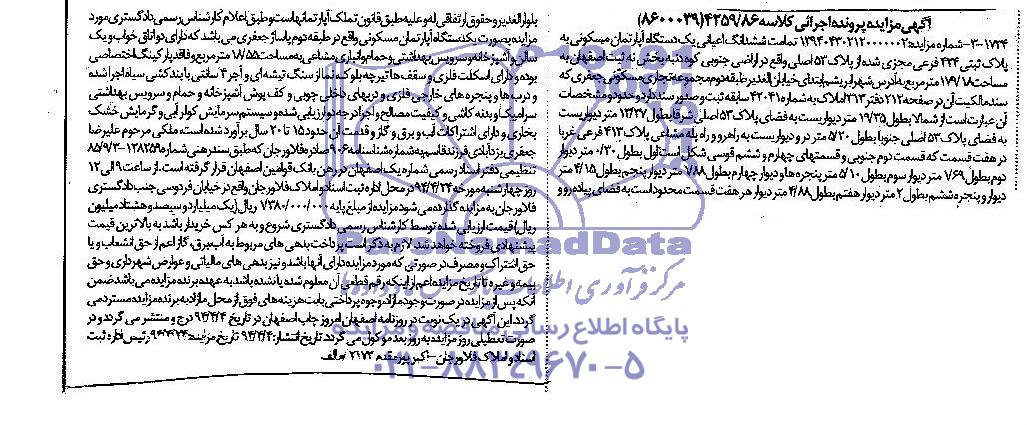 آگهی مزایده پرونده اجرائی کلاسه ۴۲۵۹/۸۶(۸۶۰۰۰۳۹)
۱۷۳۴-۳- شماره مزایده: ۱۳۹۴۰۴۳۰۲۱۲۰۰۰۰۰۰۲ تمامت ششدانگ اعیانی یک دستگاه آپارتمان مسکونی به
پلاک ثبتی ۴۲۴ فرعی مجزی شده از پلاک ۵۲ اصلی واقع در اراضی جنوبی کوه دنبه بخش نه ثبت اصفهان به
مساحت ۱۷۹/۱۸ متر مربع به آدرس شهر ابریشم ابتدای خیابان الغدیر طبقه دوم مجموعه تجاری مسکونی جعفری که
سند مالکیت آن در صفحه ۲۱۲ دفتر ۲۱۳ املاک به شماره ۴۲۰۴۱ سابقه ثبت و صدور سند دارد و حدود و مشخصات
آن عبارت است از شمالا بطول ۱۹/۳۵ متر دیواریست به فضای پلاک ۵۳ اصلی شرقا بطول ۱۳/۳۷ متر دیواریست
به فضای پلاک ۵۳ اصلی جنوبا بطول ۵/۲۰ متر در و دیواریست به راهرو و راه پله مشاعی پلاک ۴۱۳ فرعی غربا
در هفت قسمت که قسمت دوم جنوبی و قسمتهای چهارم و ششم قوسی شکل است اول بطول ۰/۳۰ متر دیوار
دوم بطول ۷/۶۹ متر دیوار سوم بطول ۵/۱۰ متر پنجره و دیوار چهارم بطول ۷/۸۸ متر دیوار پنجم بطول ۴/۱۵ متر
دیوار و پنجره ششم بطول ۲ متر دیوار هفتم بطول ۴/۸۸ متر دیوار هر هفت قسمت محدود است به فضای پیاده رو و
بلوار الغدیر و حقوق ارتفاقی له و علیه طبق قانون تملک آپارتمانهاست و طبق اعلام کارشناس رسمی دادگستری مورد
مزایده بصورت یکدستگاه آپارتمان مسکونی واقع در طبقه دوم پاساژ جعفری می باشد که دارای دو اتاق خواب و یک
سالن و آشپزخانه و سرویس بهداشتی و حمام و انباری مشاعی به مساحت ۱۸/۵۵ متر مربع و فاقد پارکینگ اختصاصی
بوده و دارای اسکلت فلزی و سقف ها تیرچه بلوک، نما از سنگ تیشه ای و آجر ۴ سانتی با بندکشی سیاه اجرا شده
و درب ها و پنجره های خارجی فلزی و دربهای داخلی چوبی و کف پوش آشپزخانه و حمام و سرویس بهداشتی
سرامیک و بدنه کاشی و کیفیت مصالح و اجرا درجه دو ارزیابی شده و سیستم سرمایش کولر آبی و گرمایش خشک
بخاری و دارای اشتراکات آب و برق و گاز و قدمت آن حدود ۱۵ تا ۲۰ سال برآورد شده است، ملکی مرحوم علیرضا
جعفری یزدآبادی فرزند قاسم به شماره شناسنامه ۹۰۶ صادره فلاورجان که طبق سند رهنی شماره ۱۳۸۲۵۹-۸۵/۹/۳
تنظیمی دفتر اسناد رسمی شماره یک اصفهان در رهن بانک قوامین اصفهان قرار گرفته است، از ساعت ۹ الی ۱۲
روز چهارشنبه مورخه ۹۴/۳/۲۴ در محل اداره ثبت اسناد و املاک فلاورجان واقع در خیابان فردوسی جنب دادگستری
فلاورجان به مزایده گذارده می شود مزایده از مبلغ پایه ۷۳۸۰/۰۰۰/۰۰۰ ریال (یک میلیارد و سیصد و هشتاد میلیون
ریال) قیمت ارزیابی شده توسط کارشناس رسمی دادگستری شروع و به هر کس خریدار باشد به بالاترین قیمت
پیشنهادی فروخته خواهد شد. لازم به ذکر است پرداخت بدهی های مربوط به آب، برق، گاز اعم از حق انشعاب و یا
حق اشتراک و مصرف در صورتی که مورد مزایده دارای آنها باشد و نیز بدهی های مالیاتی و عوارض شهرداری و حق
بیمه و غیره تا تاریخ مزایده اعم از اینکه رقم قطعی آن معلوم شده یا نشده باشد به عهده برنده مزایده می باشد ضمن
آنکه پس از مزایده در صورت وجود مازاد وجوه پرداختی بابت هزینه های فوق از محل مازاد به برنده مزایده مسترد می
گردد. این آگهی در یک نوبت در روزنامه اصفهان امروز چاپ اصفهان در تاریخ ۹۴/۳/۴ درج و منتشر می گردد و در
صورت تعطیلی روز مزایده به روز بعد موکول می گردد تاریخ انتشار: ۹۴/۳/۴ تاریخ مزایده: رئیس اداره ثبت
اسناد و املاک فلاورجان - اکبر پورمقدم ۲۱۷۳/م الف
ParsNamadData
پایگاه اطلاع رسانی مناقصه و مزایده
۰۲۱-۸۸۳۴۹۶۷۰-۵